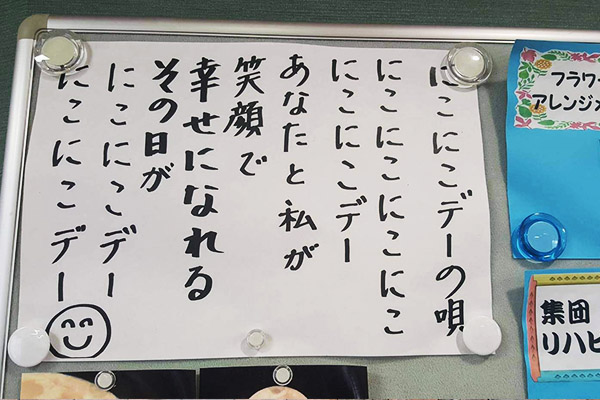 にこにこデーの唄
にこにこにこにこ
にこにこデー
あなたと私が
笑顔で
幸せになれる
その日が
にこにこデー
にこにこデー
フラワー
アレンジメ
集団
リハビ